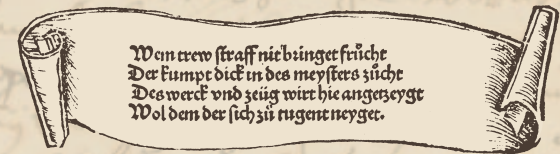 Wem trew straff nit bringet frücht
Der kumpt dick in des meysters zücht
Des werck vnd zeüg wirt hie angetzeygt
Wol dem der sich zü tugent neyget.